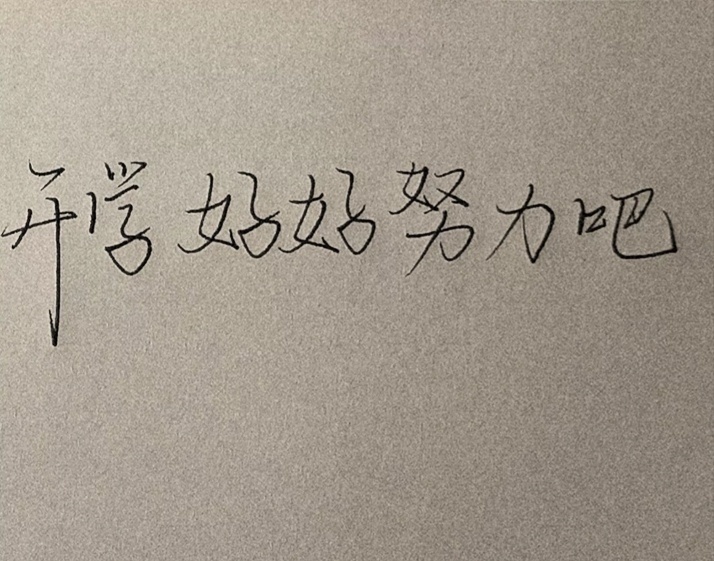 开学好好努力吧